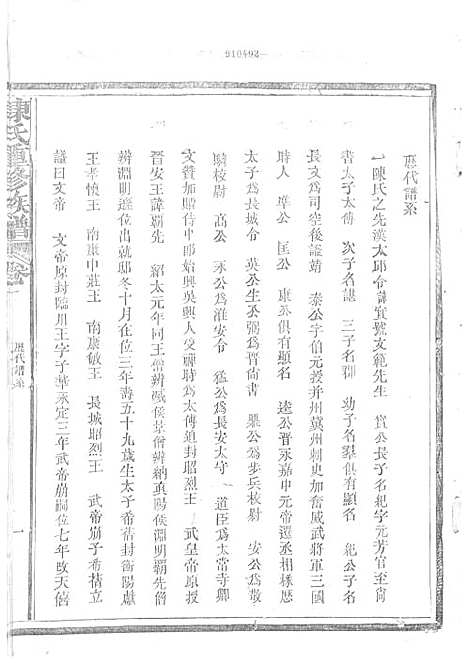 910492
歷代譜系
一陳氏之先漢太邱令諱寔號文範先生 寔公長子名紀字元芳官至尚
書太子太傅 次子名諶 三子名 幼子名 俱有顯名 紀公子名
長文為司空後諡靖 泰公字伯元授并州冀州刺史加奮威武將軍三國
時人 準公 匡公 康公俱有顯名 逵公晉永嘉中元帝遷丞相椽歷
太子為長城令 英公生公弼為晉尚書 公為步兵校尉 安公為散
騎校尉 高公 永公為淮安令 猛公為長安太守 道臣為太常寺卿
文贊加贈侍中 始興吳興人交 時為太傅追封昭烈王 武皇帝原授
晉安王諱霸先 紹太元年同王僧辨 侯景僧辨納貞陽侯淵明霸先僧
辨淵明遜位出就邸冬十月在位三年壽五十九歲生太子帝 封衡陽獻
王孝懷王 南康中莊王 南康敏王 長城昭烈王 武帝崩子帝 立
諡曰文帝 文帝原封臨川王字子華永定三年武帝崩嗣位七年改天
陳氏重修族譜 卷一
歷代譜系
一